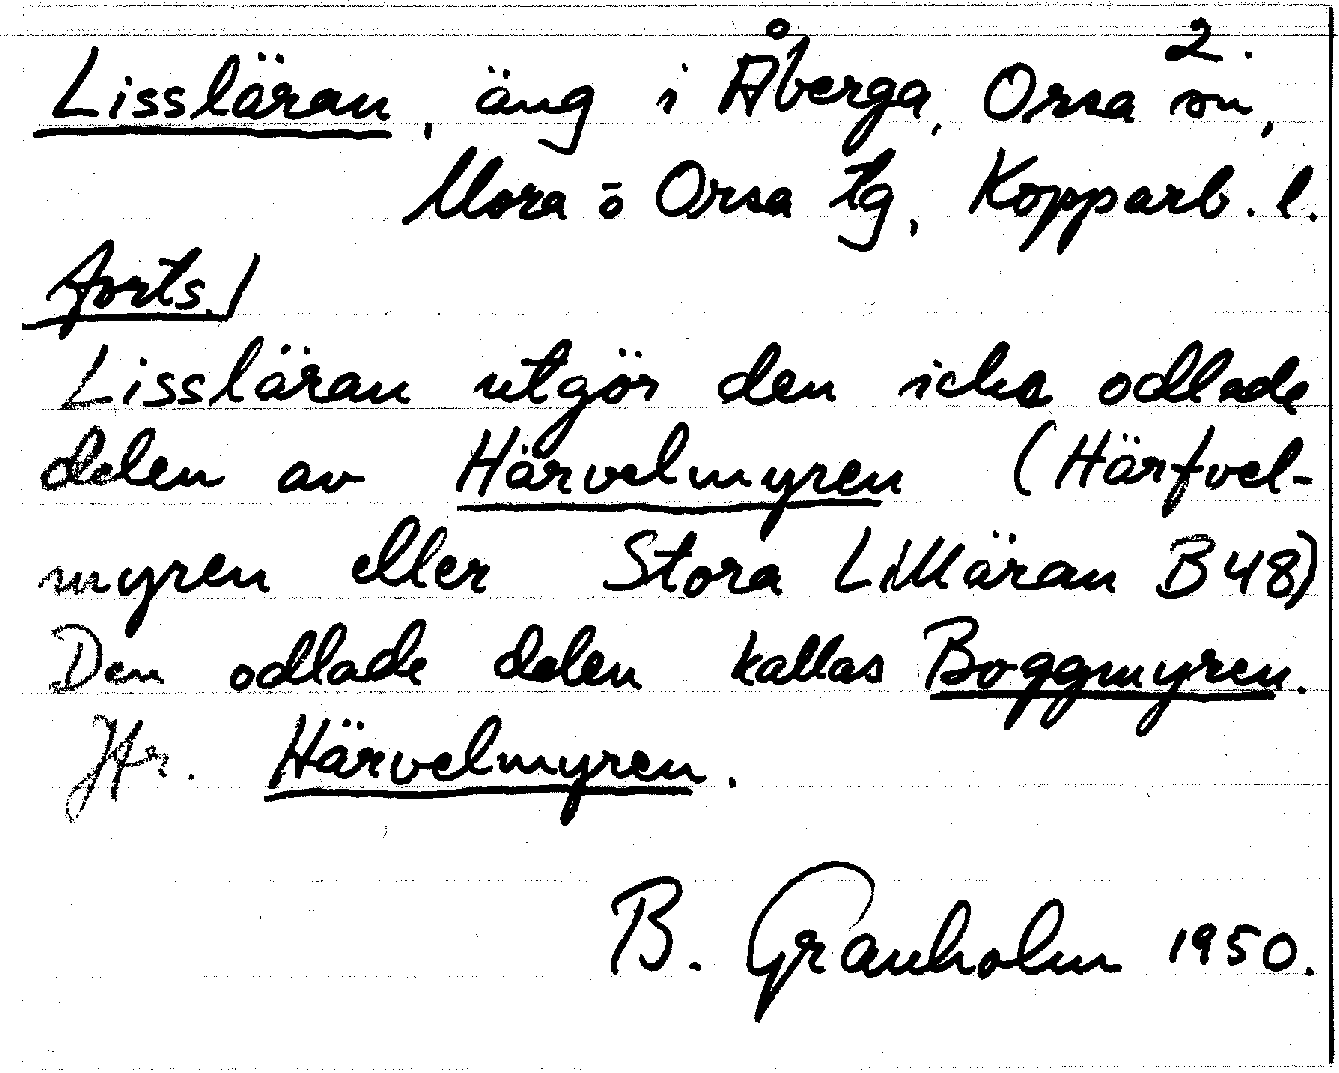 2.
Lissläran, äng i Åberga, Orsa sn,
Mora o Orsa tg, Kopparb. l.
Forts./
Lissläran utgör den icke odlade
delen av Härvelmyren (Härfvel-
myren eller Stora Lilläran B48)
Den odlade delen kallas Boggmyren.
Jfr. Härvelmyren.
B. Granholm 1950.